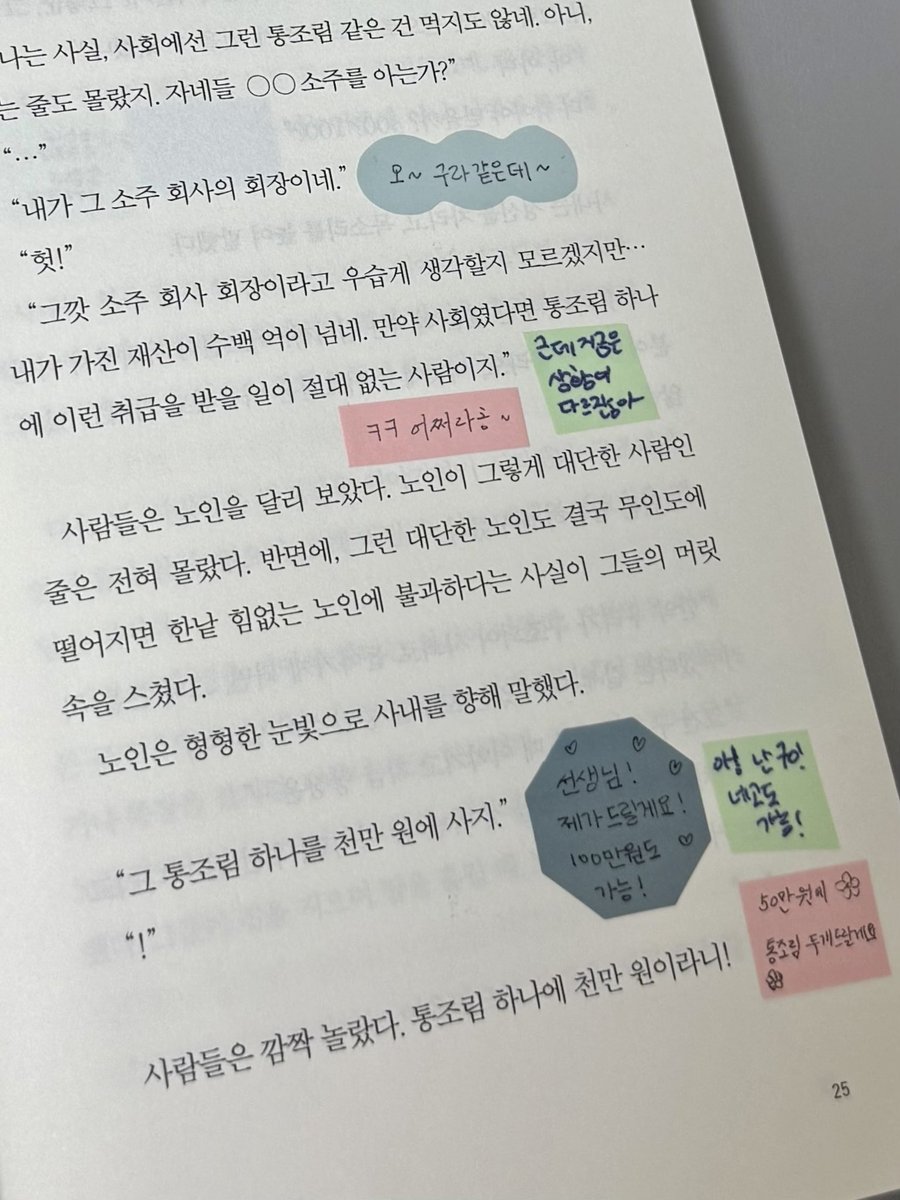 나는 사실, 사회에선 그런 통조림 같은 건 먹지도 않네. 아니,
는 줄도 몰랐지. 자네들 ○○ 소주를 아는가?”
“…”
“내가 그 소주 회사의 회장이네.”
오~ 구라같은데~
“헛!”
“그깟 소주 회사 회장이라고 우습게 생각할지 모르겠지만…
내가 가진 재산이 수백 억이 넘네. 만약 사회였다면 통조림 하나
에 이런 취급을 받을 일이 절대 없는 사람이지.”
근데 지금은
상황이
다르잖아
ㅋㅋ 어쩌라중~
사람들은 노인을 달리 보았다. 노인이 그렇게 대단한 사람인
줄은 전혀 몰랐다. 반면에, 그런 대단한 노인도 결국 무인도에
떨어지면 한낱 힘없는 노인에 불과하다는 사실이 그들의 머릿
속을 스쳤다.
노인은 형형한 눈빛으로 사내를 향해 말했다.
“그 통조림 하나를 천만 원에 사지.”
선생님!
제가 드릴게요!
100만원도
가능!
난 90!
네고도
가능!
“!”
50만원에
통조림 두개드릴게요
사람들은 깜짝 놀랐다. 통조림 하나에 천만 원이라니!
25